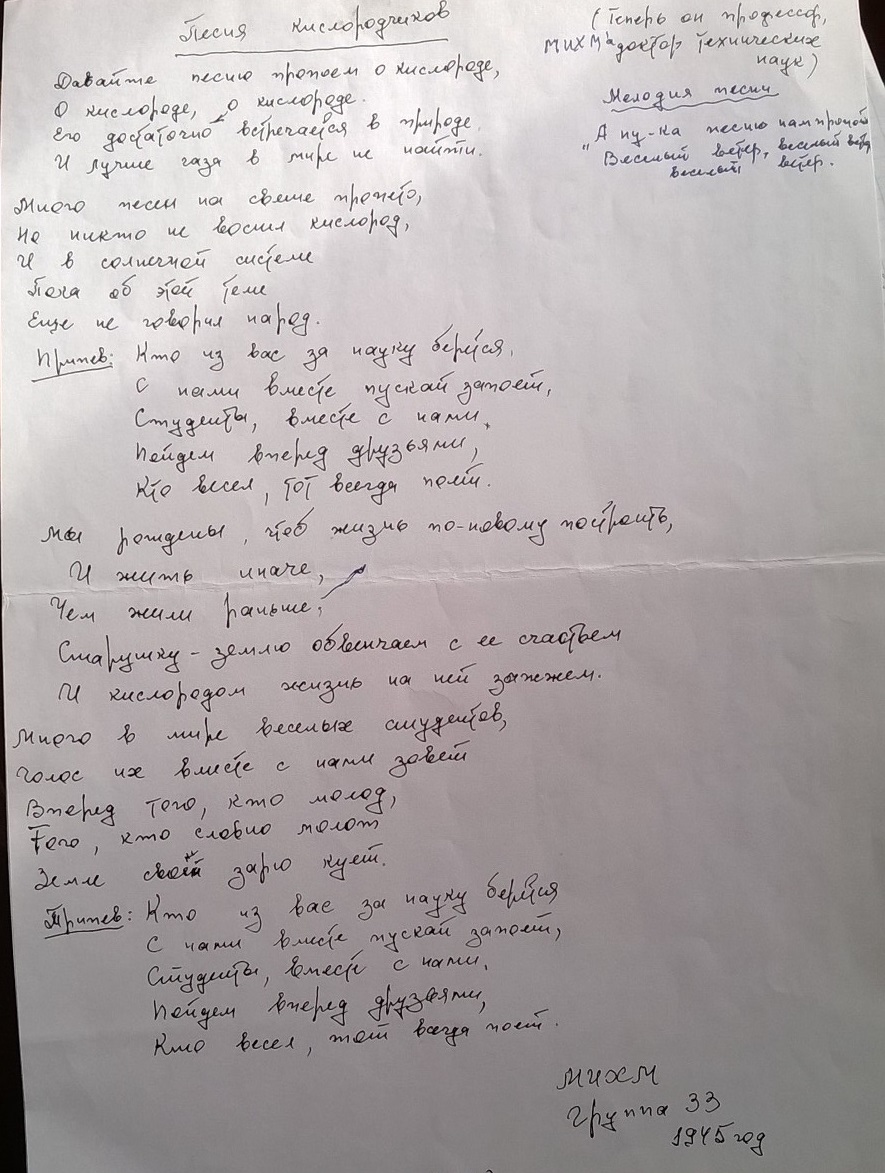 Песня кислородчиков
(Теперь он профессор,
МИХМ'а доктор технических
наук)
Мелодия песни
"А ну-ка песню нам пропой
Веселый ветер, веселый ветер
веселый ветер.
Давайте песню пропоем о кислороде,
О кислороде, о кислороде.
Его достаточно встречается в природе,
И лучше газа в мире не найти.
Много песен на свете пропето,
Но никто не воспел кислород,
И в солнечной системе
Пока об этой теме
Еще не говорил народ.
Припев: Кто из вас за науку берется,
С нами вместе пускай запоет,
Студенты, вместе с нами,
Пойдем вперед друзьями,
Кто весел, тот всегда поет.
Мы рождены, чтоб жизнь по-новому построить,
И жить иначе,
Чем жили раньше,
Старушку-землю обвенчаем с ее счастьем
И кислородом жизнь на ней зажжем.
Много в мире веселых студентов,
Голос их вместе с нами зовет
Вперед того, кто молод,
Того, кто словно молот
Земле своей зарю кует.
Припев: Кто из вас за науку берется
С нами вместе пускай запоет,
Студенты, вместе с нами,
Пойдем вперед друзьями,
Кто весел, тот всегда поет.
МИХМ
Группа 33
1945 год